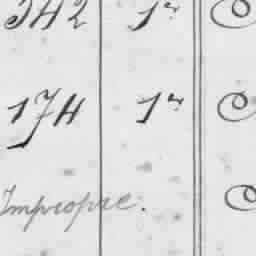 342 1r
174 1r
Impropre.